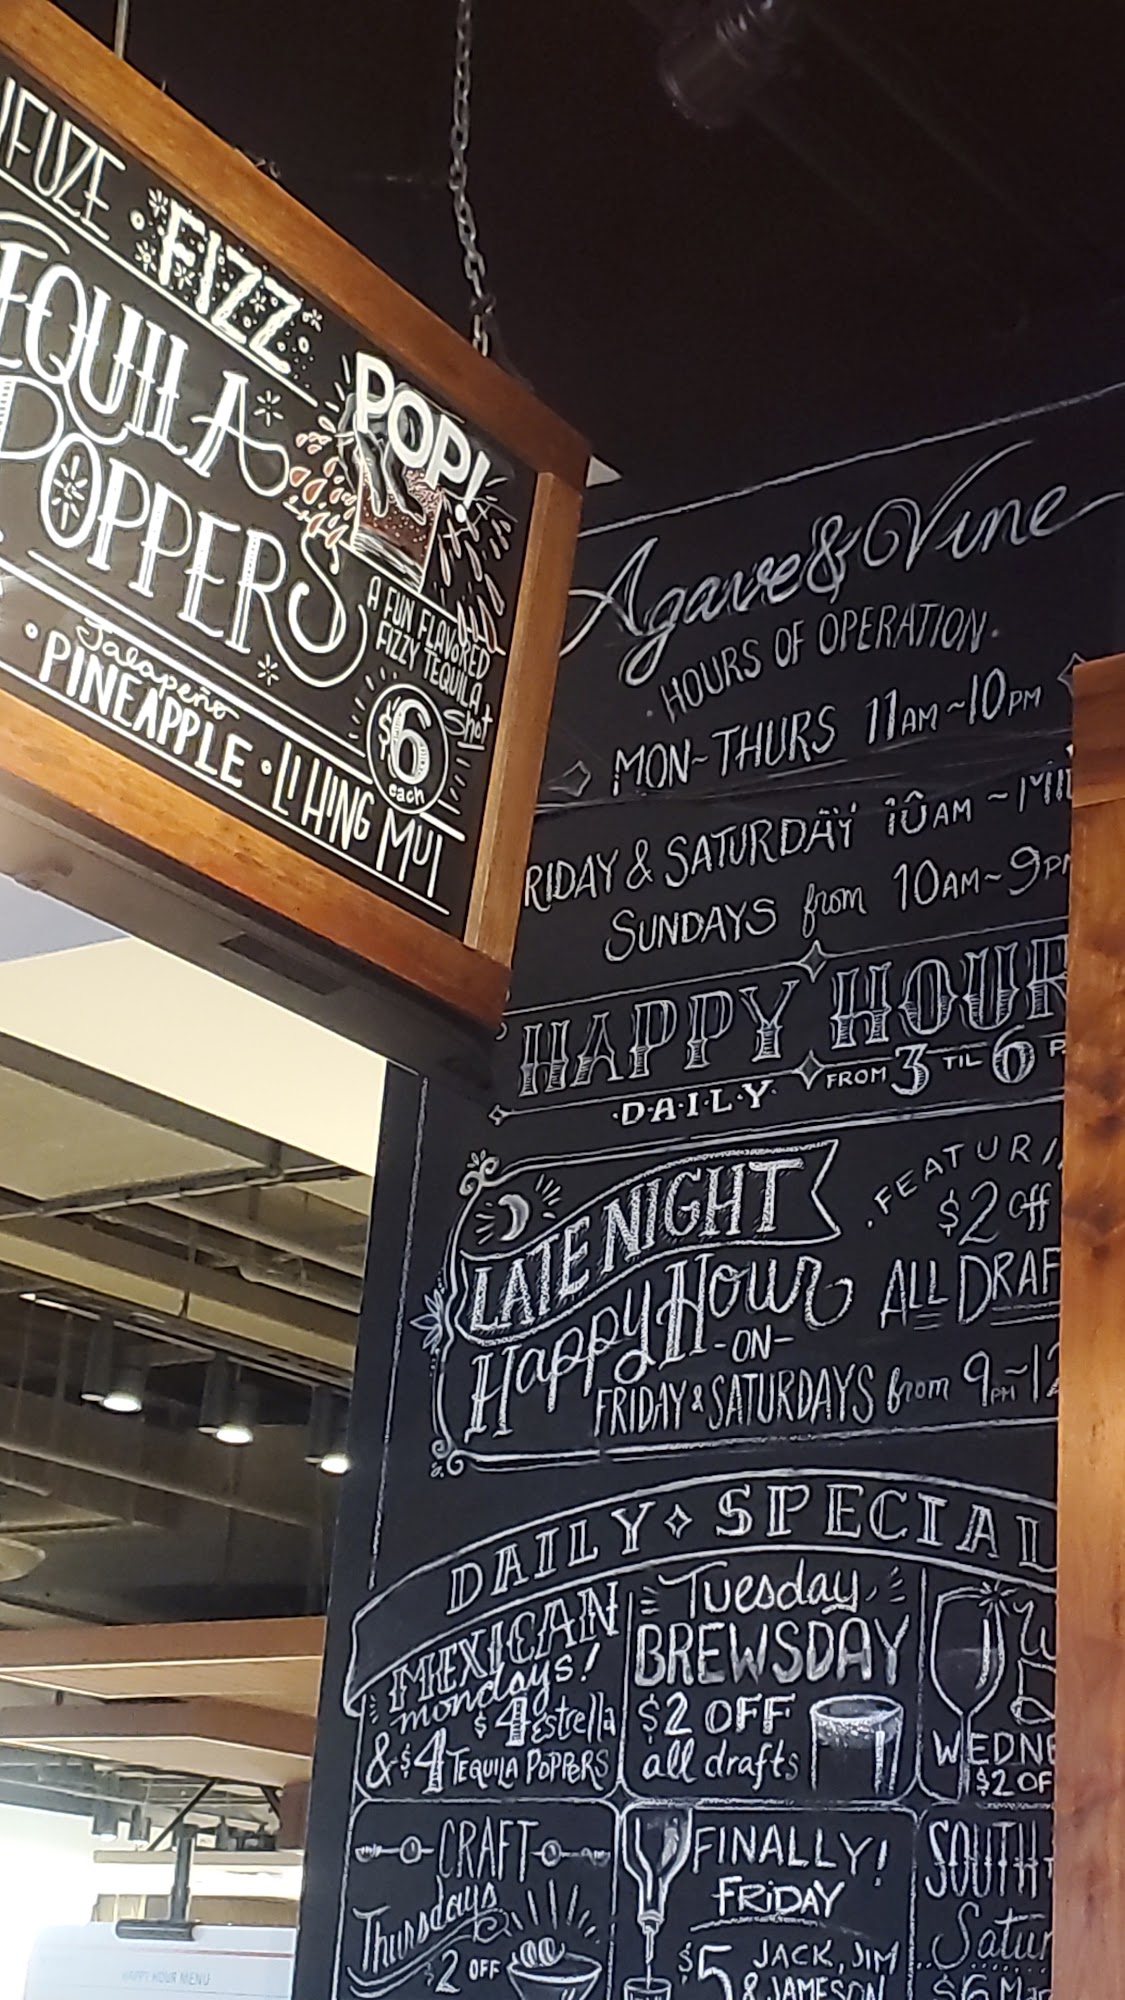 FIZZ
POP!
TEQUILA
POPPERS
A FUN FLAVORED
FIZZY TEQUILA
Shot
$6
each
Jalapeño
PINEAPPLE • LI HING MUI
Agave & Vine
HOURS OF OPERATION
MON~THURS 11AM~10PM
& SATURDAY 10AM ~
SUNDAYS from 10AM~9PM
HAPPY HOUR
DAILY FROM 3 TIL 6
LATE NIGHT
Happy Hour
-ON-
FRIDAY & SATURDAYS from 9PM~
$2 Off
ALL
DAILY SPECIAL
MEXICAN
mondays!
$4 Estrella
& $4 TEQUILA POPPERS
Tuesday
BREWSDAY
$2 OFF
all drafts
$2
CRAFT
Thursdays
$2 OFF
FINALLY!
FRIDAY
$5 JACK, JIM
& JAMESON
SOUTH
$6
HAPPY HOUR MENU